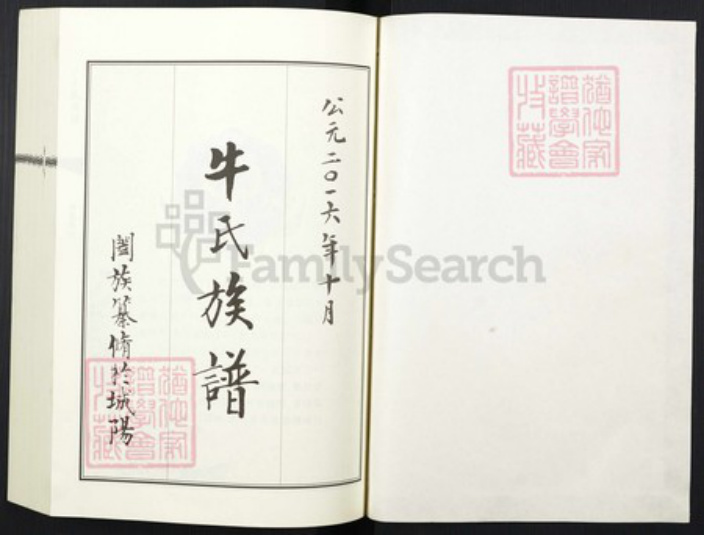 公元二〇一六年十月
牛氏族譜
闔族纂脩於城陽
猶他家
譜學會
收藏
猶他家
譜學會
收藏
FamilySearch